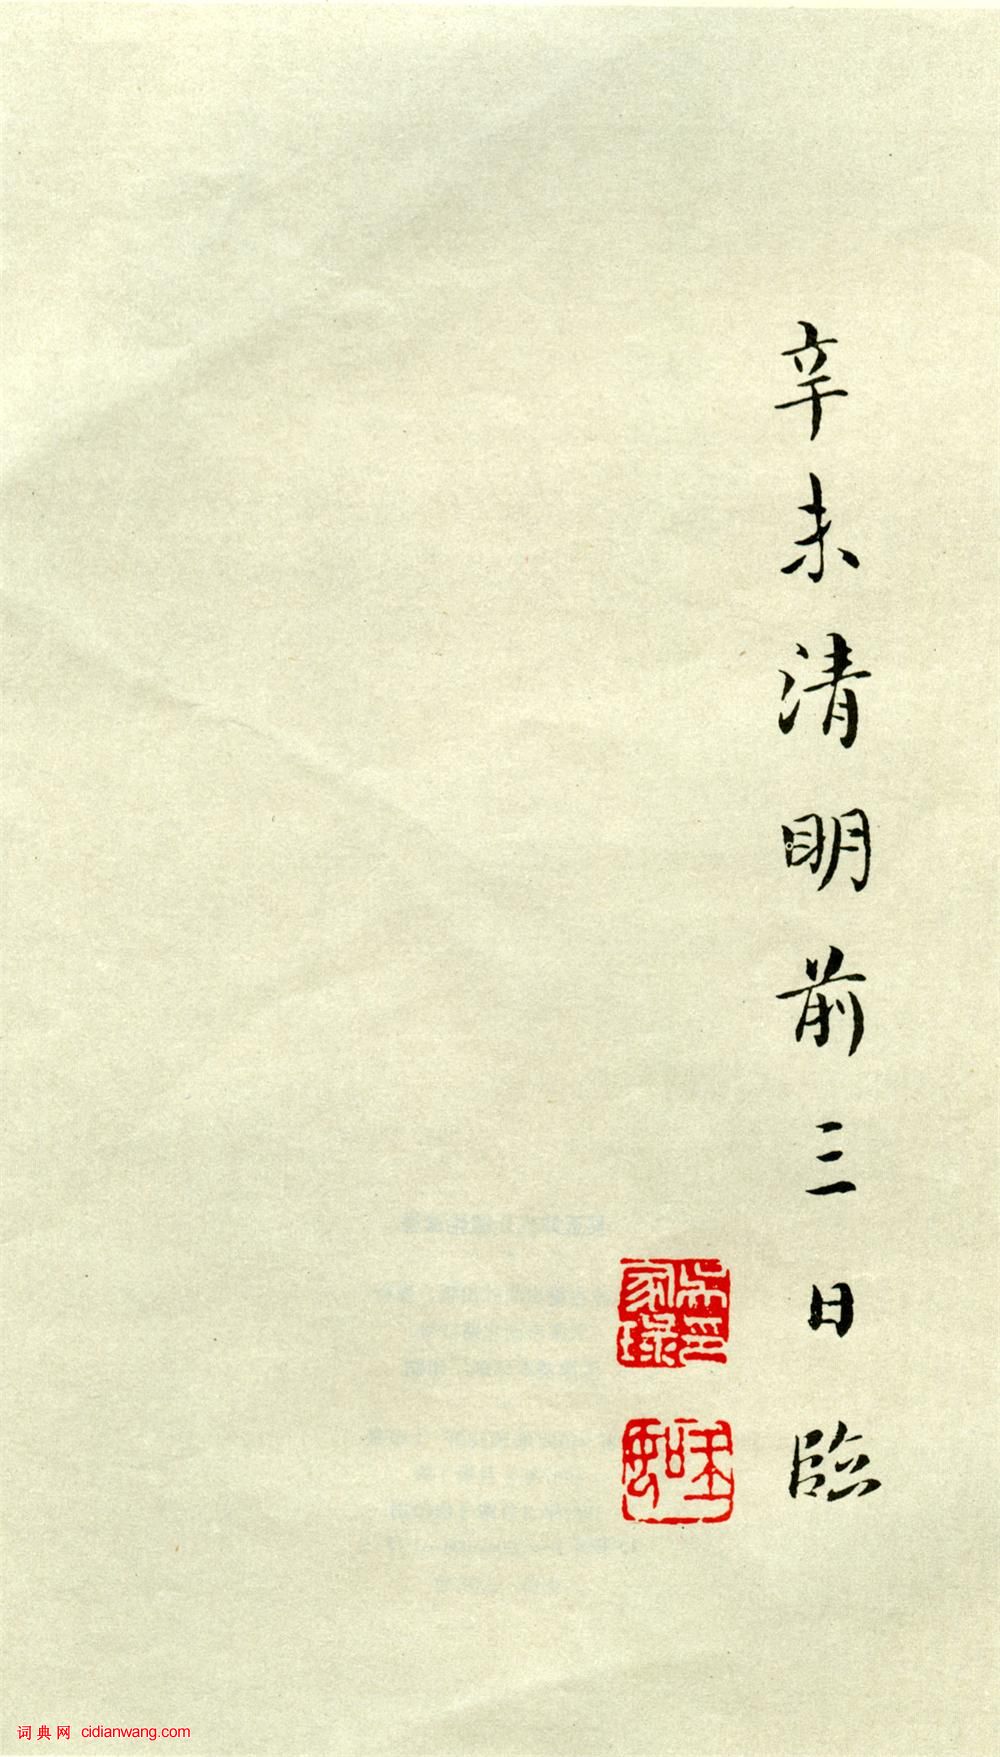 辛未清明前三日臨
吴印家琭
词典网 cidianwang.com